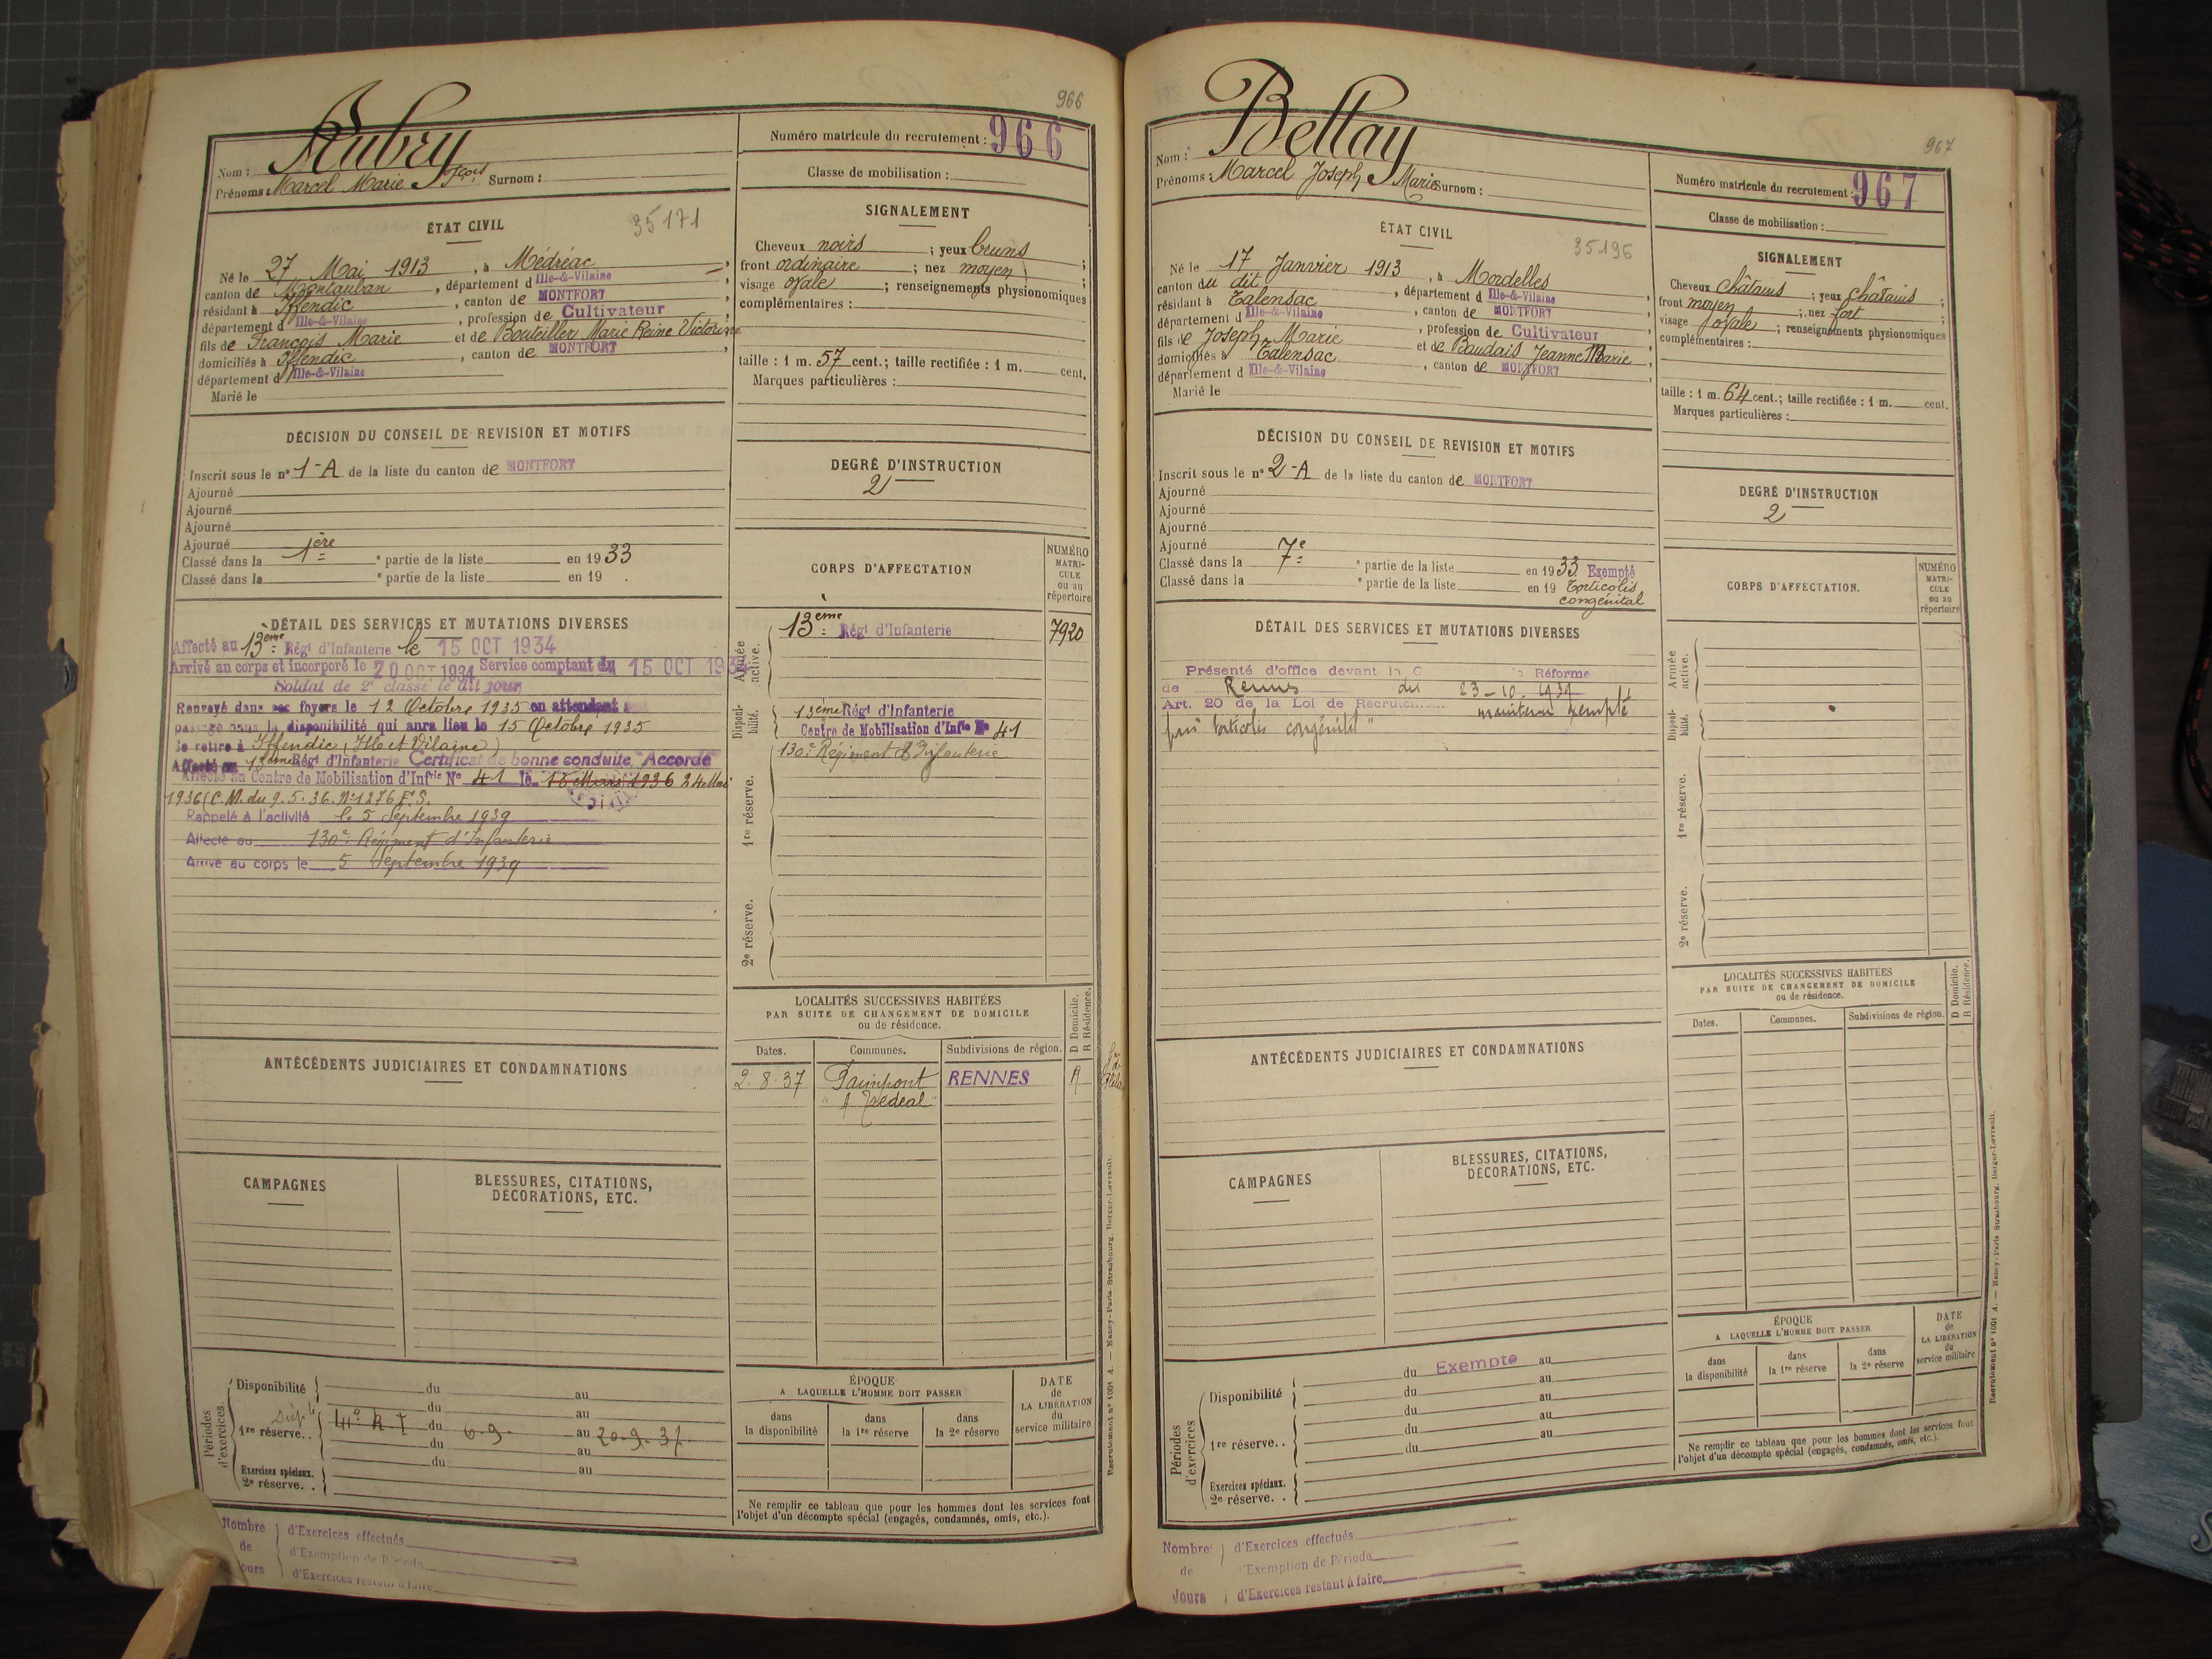 966
Aubry
Nom :
Prénoms : Marcel Marie Fçois Surnom :
Numéro matricule du recrutement : 966
Classe de mobilisation :
ÉTAT CIVIL
35171
Né le 27 Mai 1913, à Médréac
canton de Montauban, département d Ille-&-Vilaine
résidant à Iffendic, canton de MONTFORT
département d Ille-&-Vilaine, profession de Cultivateur
fils de François Marie et de Bouteiller Marie Reine Victorine
domiciliés à Iffendic, canton de MONTFORT
département d Ille-&-Vilaine
Marié le
SIGNALEMENT
Cheveux noirs ; yeux bruns ;
front ordinaire ; nez moyen ;
visage ovale ; renseignements physionomiques
complémentaires :
taille : 1 m. 57 cent.; taille rectifiée : 1 m. cent.
Marques particulières :
DÉCISION DU CONSEIL DE REVISION ET MOTIFS
Inscrit sous le n° 1-A de la liste du canton de MONTFORT
Ajourné
Ajourné
Ajourné
Ajourné
Classé dans la 1ère partie de la liste en 1933
Classé dans la partie de la liste en 19
DEGRÉ D'INSTRUCTION
2
DÉTAIL DES SERVICES ET MUTATIONS DIVERSES
Affecté au 13ème Régt d'Infanterie le 15 OCT 1934
Arrivé au corps et incorporé le 20 OCT 1934 Service comptant du 15 OCT 1934
Soldat de 2e classe le dit jour
Renvoyé dans ses foyers le 12 Octobre 1935 en attendant son
passage dans la disponibilité qui aura lieu le 15 Octobre 1935
Se retire à Iffendic (Ille et Vilaine)
Affecté au 13ème Régt d'Infanterie Certificat de bonne conduite "Accordé"
Affecté au Centre de Mobilisation d'Infrie N° 41 le 15 Mars 1936 24 Mai
1936 (C.M. du 9.5.36. N°1276 E.S.
Rappelé à l'activité le 5 Septembre 1939
Affecté au 130e Régiment d'Infanterie
Arrivé au corps le 5 Septembre 1939
CORPS D'AFFECTATION
NUMÉRO
MATRI-
CULE
ou au
répertoire
Armée active.
13ème Régt d'Infanterie
7920
Disponibilité.
13ème Régt d'Infanterie
Centre de Mobilisation d'Infie N° 41
130e Régiment d'Infanterie
1re réserve.
2e réserve.
LOCALITÉS SUCCESSIVES HABITÉES
PAR SUITE DE CHANGEMENT DE DOMICILE
ou de résidence.
D Domicile.
R Résidence.
Dates.
Communes.
Subdivisions de région.
2.8.37 Paimpont RENNES R
"à Trédéal"
ANTÉCÉDENTS JUDICIAIRES ET CONDAMNATIONS
CAMPAGNES
BLESSURES, CITATIONS,
DÉCORATIONS, ETC.
Périodes d'exercices.
Disponibilité du au
du au
1re réserve. . 41e R I du 6-9- au 20-9-37
du au
du au
Exercices spéciaux.
2e réserve. .
ÉPOQUE
A LAQUELLE L'HOMME DOIT PASSER
dans
la disponibilité
dans
la 1re réserve
dans
la 2e réserve
DATE
de
LA LIBÉRATION
du
service militaire
Ne remplir ce tableau que pour les hommes dont les services font
l'objet d'un décompte spécial (engagés, condamnés, omis, etc.).
Recrutement n° 1001 A. — Nancy-Paris-Strasbourg. Berger-Levrault.
Nombre
de
Jours
d'Exercices effectués
d'Exemption de Période
d'Exercices restant à faire
967
Bellay
Nom :
Prénoms : Marcel Joseph Marie Surnom :
Numéro matricule du recrutement : 967
Classe de mobilisation :
ÉTAT CIVIL
35196
Né le 17 Janvier 1913, à Mordelles
canton du dit, département d Ille-&-Vilaine
résidant à Talensac, canton de MONTFORT
département d Ille-&-Vilaine, profession de Cultivateur
fils de Joseph Marie et de Baudais Jeanne Marie
domiciliés à Talensac, canton de MONTFORT
département d Ille-&-Vilaine
Marié le
SIGNALEMENT
Cheveux châtains ; yeux châtains ;
front moyen ; nez fort ;
visage ovale ; renseignements physionomiques
complémentaires :
taille : 1 m. 64 cent.; taille rectifiée : 1 m. cent.
Marques particulières :
DÉCISION DU CONSEIL DE REVISION ET MOTIFS
Inscrit sous le n° 2-A de la liste du canton de MONTFORT
Ajourné
Ajourné
Ajourné
Ajourné
Classé dans la 7e partie de la liste en 1933 Exempté
Classé dans la partie de la liste en 19 Torticolis
congénital
DEGRÉ D'INSTRUCTION
2
DÉTAIL DES SERVICES ET MUTATIONS DIVERSES
Présenté d'office devant la C Réforme
de Rennes du 23-10-1939
Art. 20 de la Loi de Recrutement maintenu exempté
pour "torticolis congénital"
CORPS D'AFFECTATION.
NUMÉRO
MATRI-
CULE
ou au
répertoire
Armée active.
Disponibilité.
1re réserve.
2e réserve.
LOCALITÉS SUCCESSIVES HABITÉES
PAR SUITE DE CHANGEMENT DE DOMICILE
ou de résidence.
D Domicile.
R Résidence.
Dates.
Communes.
Subdivisions de région.
ANTÉCÉDENTS JUDICIAIRES ET CONDAMNATIONS
CAMPAGNES
BLESSURES, CITATIONS,
DÉCORATIONS, ETC.
Périodes d'exercices
Disponibilité du Exempté au
du au
du au
1re réserve. . du au
du au
Exercices spéciaux.
2e réserve. .
ÉPOQUE
A LAQUELLE L'HOMME DOIT PASSER
dans
la disponibilité
dans
la 1re réserve
dans
la 2e réserve
DATE
de
LA LIBÉRATION
du
service militaire
Ne remplir ce tableau que pour les hommes dont les services font
l'objet d'un décompte spécial (engagés, condamnés, omis, etc.).
Recrutement n° 1001 A. — Nancy-Paris-Strasbourg. Berger-Levrault.
Nombre
de
Jours
d'Exercices effectués
d'Exemption de Période
d'Exercices restant à faire